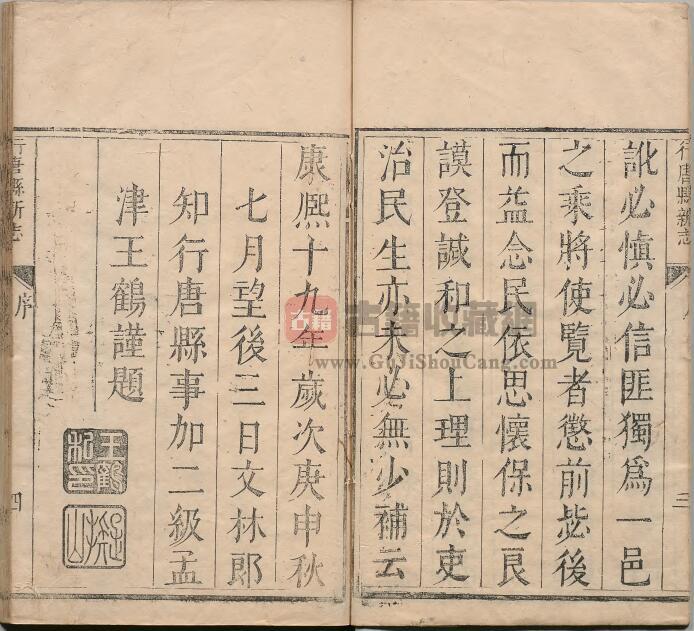 行唐縣新志
三
訛必慎必信匪獨爲一邑
之乘將使覽者懲前毖後
而益念民依思懷保之良
謨登諴和之上理則於吏
治民生亦未必無少補云
康熙十九年歲次庚申秋
七月望後三日文林郎
知行唐縣事加二級孟
津王鶴謹題
王鶴
行唐縣新志
序
四
古籍
古籍收藏網
www.GuJiShouCang.com